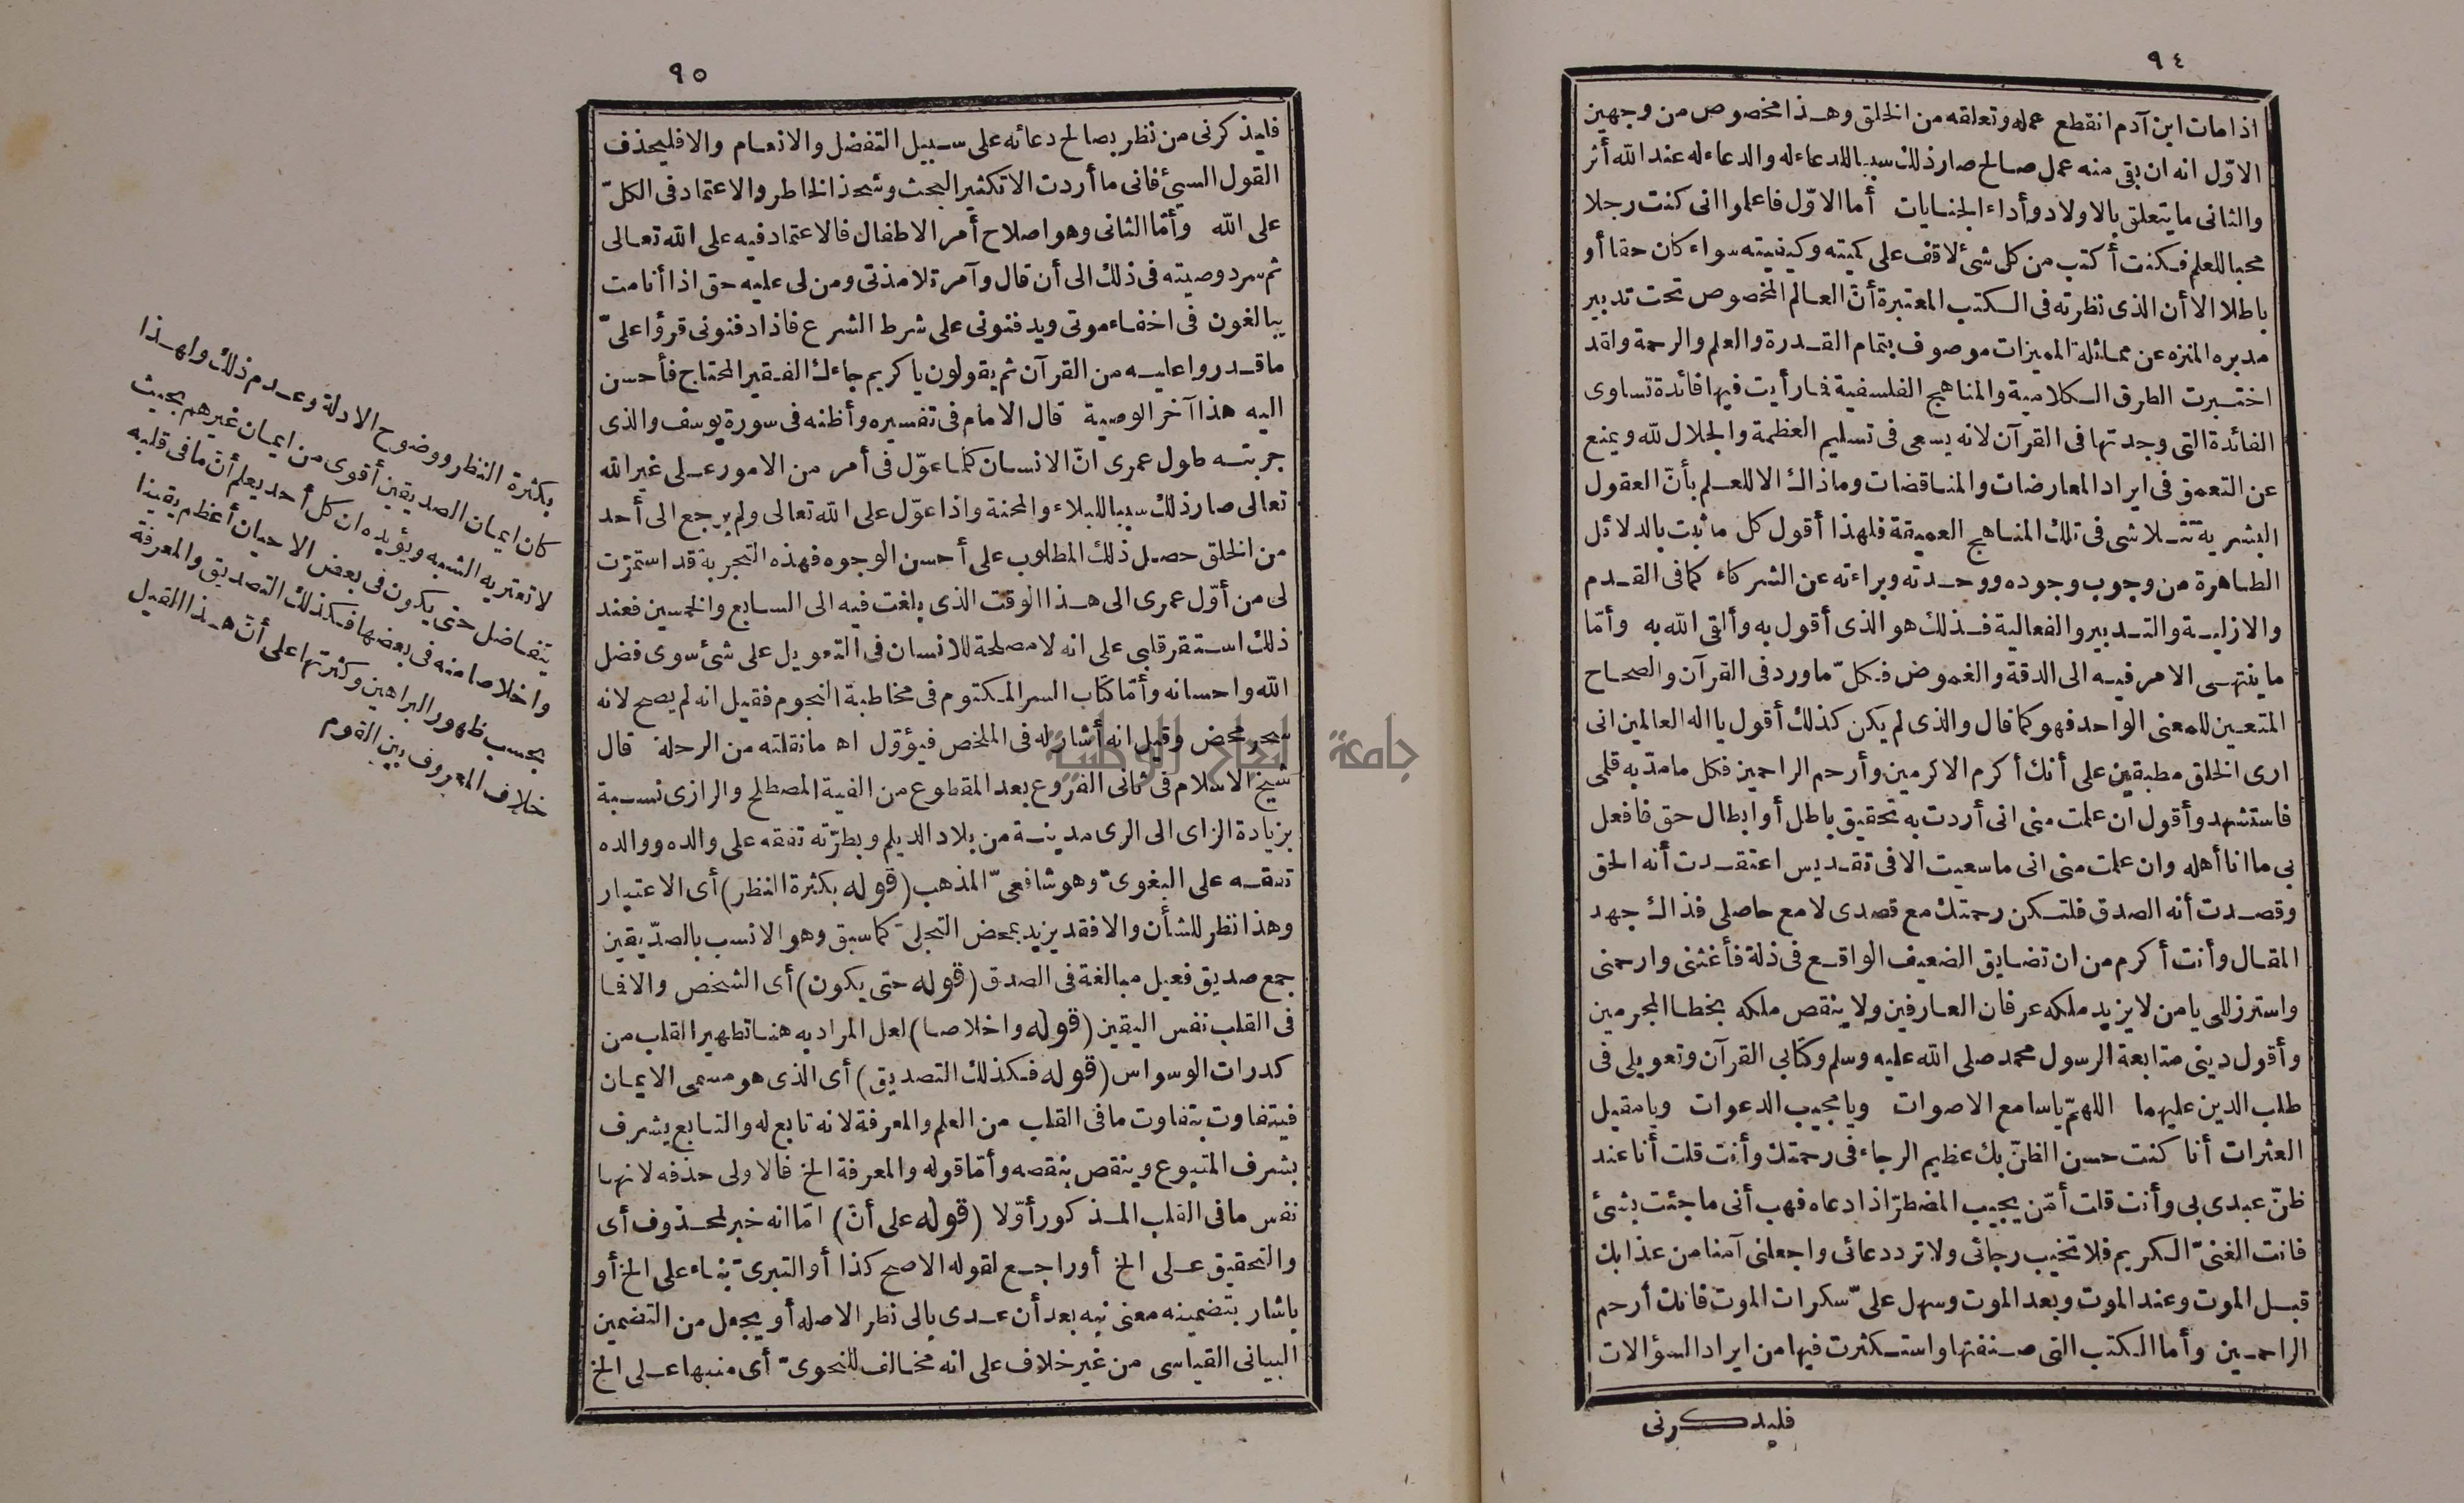 ٩٤
اذا مات ابن آدم انقطع عمله وتعلقه من الخلق وهذا مخصوص من وجهين
الاوّل انه ان بقى منه عمل صالح صار ذلك سببا للدعاء له والدعاء له عند الله أثر
والثانى ما يتعلق بالاولاد وأداء الجنايات أما الاوّل فاعلموا انى كنت رجلا
محبا للعلم فكنت أكتب من كل شئ لاقف على كميته وكيفيته سواء كان حقا أو
باطلا الا أن الذى نظرته فى الكتب المعتبرة أنّ العالم المخصوص تحت تدبير
مدبره المنزه عن مماثلة المميزات موصوف بتمام القدرة والعلم والرحمة ولقد
اختبرت الطرق الكلامية والمناهج الفلسفية فما رأيت فيها فائدة تساوى
الفائدة التى وجدتها فى القرآن لانه يسعى فى تسليم العظمة والجلال لله ويمنع
عن التعمق فى ايراد المعارضات والمناقضات وما ذاك الا للعلم بأنّ العقول
البشرية تتلاشى فى تلك المناهج العميقة فلهذا أقول كل ما ثبت بالدلائل
الظاهرة من وجوب وجوده ووحدته وبراءته عن الشركاء كما فى القدم
والازلية والتدبير والفعالية فذلك هو الذى أقول به وألقى الله به وأمّا
ما ينتهى الامر فيه الى الدقة والغموض فكلّ ما ورد فى القرآن والصحاح
المتعين للمعنى الواحد فهو كما قال والذى لم يكن كذلك أقول يا اله العالمين انى
ارى الخلق مطبقين على أنك أكرم الاكرمين وأرحم الراحمين فكل ما مدّ به قلمى
فاستشهد وأقول ان علمت منى انى أردت به تحقيق باطل أو ابطال حق فافعل
بى ما انا أهله وان علمت منى انى ما سعيت الا فى تقديس اعتقدت أنه الحق
وقصدت أنه الصدق فلتكن رحمتك مع قصدى لا مع حاصلى فذاك جهد
المقال وأنت أكرم من ان تضايق الضعيف الواقع فى ذلة فأغثنى وارحمنى
واستر زللى يا من لا يزيد ملكه عرفان العارفين ولا ينقص ملكه بخطا المجرمين
وأقول دينى متابعة الرسول محمد صلى الله عليه وسلم وكتابى القرآن وتعويلى فى
طلب الدين عليهما اللهمّ يا سامع الاصوات ويا مجيب الدعوات ويا مقيل
العثرات أنا كنت حسن الظنّ بك عظيم الرجاء فى رحمتك وأنت قلت أنا عند
ظنّ عبدى بى وأنت قلت أمّن يجيب المضطرّ اذا دعاه فهب أنى ما جئت بشئ
فانت الغنىّ الكريم فلا تخيب رجائى ولا ترد دعائى واجعلنى آمنا من عذابك
قبل الموت وعند الموت وبعد الموت وسهل علىّ سكرات الموت فانك أرحم
الراحمين وأما الكتب التى صنفتها واستكثرت فيها من ايراد السؤالات
فليذكرنى
٩٥
فليذكرنى من نظر بصالح دعائه على سبيل التفضل والانعام والا فليحذف
القول السيئ فانى ما أردت الا تكثير البحث وشحذ الخاطر والاعتماد فى الكلّ
على الله وأمّا الثانى وهو اصلاح أمر الاطفال فالاعتماد فيه على الله تعالى
ثم سرد وصيته فى ذلك الى أن قال وآمر تلامذتى ومن لى عليه حق اذا أنا مت
يبالغون فى اخفاء موتى ويدفنونى على شرط الشرع فاذا دفنونى قرؤا علىّ
ما قدروا عليه من القرآن ثم يقولون يا كريم جاءك الفقير المحتاج فأحسن
اليه هذا آخر الوصية قال الامام فى تفسيره وأظنه فى سورة يوسف والذى
جربته طول عمرى انّ الانسان كلما عوّل فى أمر من الامور على غير الله
تعالى صار ذلك سببا للبلاء والمحنة واذا عوّل على الله تعالى ولم يرجع الى أحد
من الخلق حصل ذلك المطلوب على أحسن الوجوه فهذه التجربة قد استمرّت
لى من أوّل عمرى الى هذا الوقت الذى بلغت فيه الى السابع والخمسين فعند
ذلك استقر قلبى على انه لا مصلحة للانسان فى التعويل على شئ سوى فضل
الله واحسانه وأمّا كتاب السر المكتوم فى مخاطبة النجوم فقيل انه لم يصح لانه
سحر محض وقيل انه أشار له فى الملخص فيؤول اه ما نقلته من الرحلة قال
شيخ الاسلام فى ثانى الفروع بعد المقطوع من الفية المصطلح والرازى نسبة
بزيادة الزاى الى الرى مدينة من بلاد الديلم وبطرّته تفقه على والده ووالده
تفقه على البغوىّ وهو شافعىّ المذهب (قوله بكثرة النظر) أى الاعتبار
وهذا نظر للشأن والا فقد يزيد بمحض التجلىّ كما سبق وهو الانسب بالصدّيقين
جمع صديق فعيل مبالغة فى الصدق (قوله حتى يكون) أى الشخص والا فما
فى القلب نفس اليقين (قوله واخلاصا) لعل المراد به هنا تطهير القلب من
كدرات الوسواس (قوله فكذلك التصديق) أى الذى هو مسمى الايمان
فيتفاوت بتفاوت ما فى القلب من العلم والمعرفة لانه تابع له والتابع يشرف
بشرف المتبوع وينقص بنقصه وأمّا قوله والمعرفة الخ فالاولى حذفه لانها
نفس ما فى القلب المذكور أوّلا (قوله على أنّ) امّا انه خبر لمحذوف أى
والتحقيق على الخ أو راجع لقوله الاصح كذا أو التبرىّ بناء على الخ أو
باشار بتضمينه معنى نبه بعد أن عدى بالى نظر الاصله أو يجعل من التضمين
البيانى القياسى من غير خلاف على انه مخالف للنحوىّ أى منبها على الخ
بكثرة النظر ووضوح الادلة وعدم ذلك ولهذا
كان ايمان الصديقين أقوى من ايمان غيرهم بحيث
لا تعتريه الشبه ويؤيده ان كل أحد يعلم أن ما فى قلبه
يتفاضل حتى يكون فى بعض الاحيان أعظم يقينا
واخلاصا منه فى بعضها فكذلك التصديق والمعرفة
بحسب ظهور البراهين وكثرتها على أنّ هذا القيل
خلاف المعروف بين القوم
جامعة النجاح الوطنية